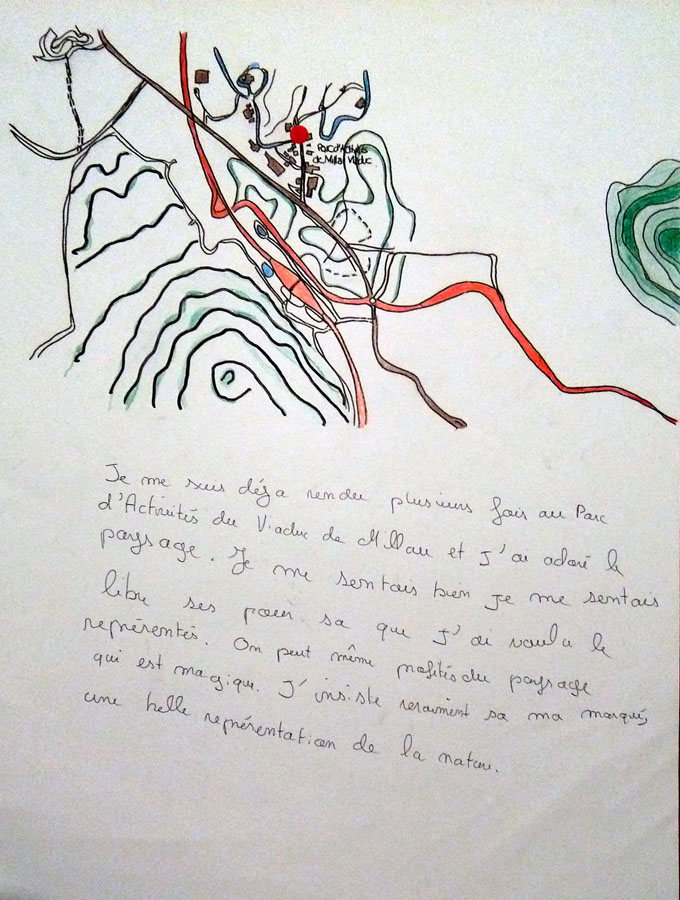 Parc d'Activités
de Millau Viaduc
Je me suis déja rendu plusieurs fois au Parc
d'Activités du Viaduc de Millau et j'ai adoré le
paysage. Je me sentais bien je me sentais
libre ses pour sa que j'ai voulu le
représentés. On peut même profités du paysage
qui est magique. J'insiste vraiment sa ma marqué,
une belle représentation de la nature.